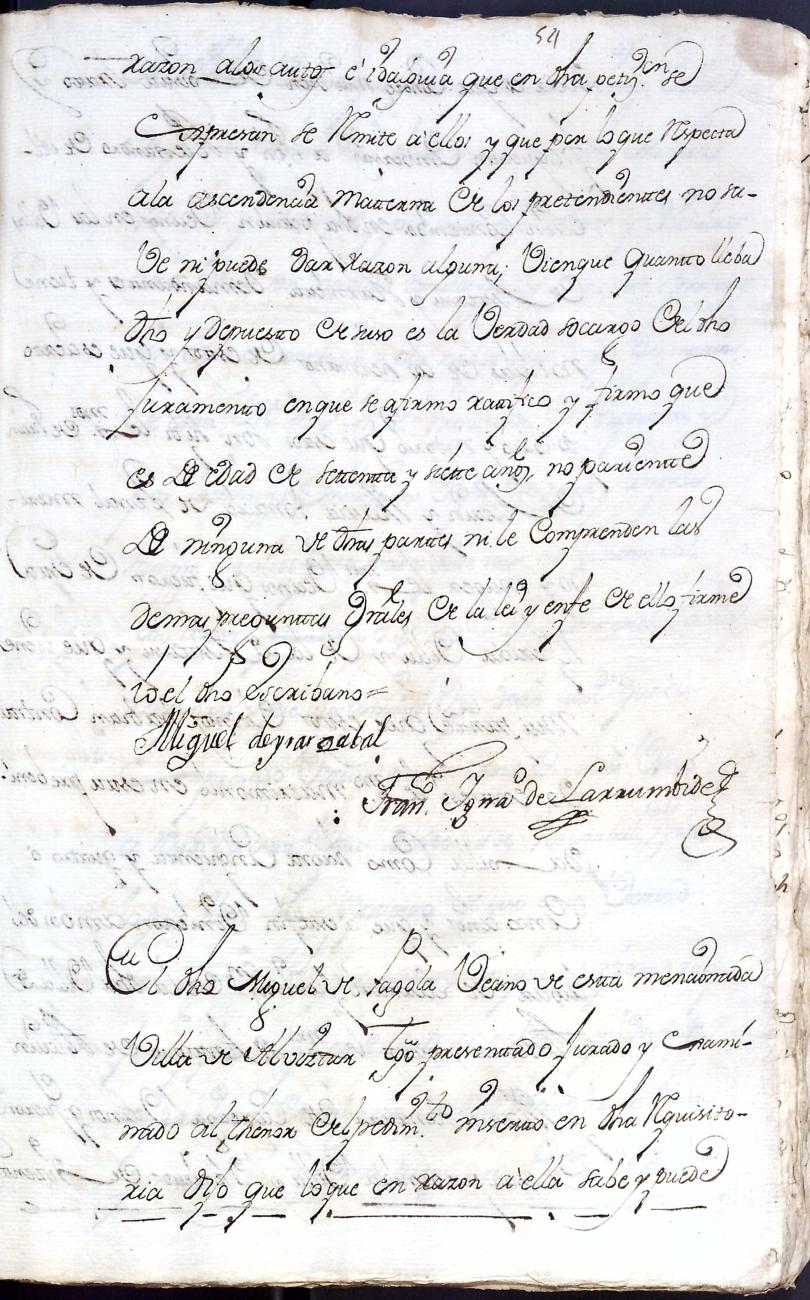 54
razon alos autos è idalguia que en dha petizon se
Expresan se Rmite à ellos y que por lo que Respecta
ala ascendencia Materna de los pretendientes no sa-
ve ni puede dar razon alguna; Vienque quanto lleba
dho y depuesto de suso es la Verdad socargo del dho
Juramento en que se afirmo ratifico y firmo que
es de edad de settenta y siette años, no pariente
de ninguna de dhas partes ni le Comprenden las
demas preguntas Grales de la lei y enfe de ello firme
io el dho Escribano=
Miguel de yrarzabal
Franco Ignao de Larrumbide
El dho Miguel de Sagola Vecino de esta mencionada
Villa de Alviztur tgo presentado Jurado y Exami-
nado al thenor del pedimto inserto en dha Rquisito-
ria dijo que lo que en razon à ella sabe y puede